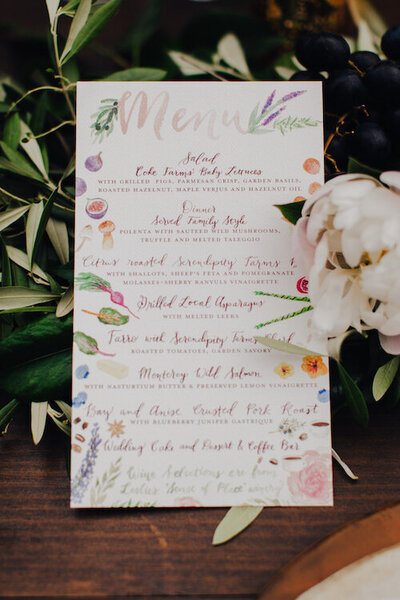 Menu
Salad
Coke Farms' Baby Lettuces
WITH GRILLED FIGS, PARMESAN CRISP, GARDEN BASILS,
ROASTED HAZELNUT, MAPLE VERJUS AND HAZELNUT OIL
Dinner
Served Family Style
POLENTA WITH SAUTEED WILD MUSHROOMS,
TRUFFLE AND MELTED TALEGGIO
Citrus roasted Serendipity Farms
WITH SHALLOTS, SHEEP'S FETA AND POMEGRANATE
MOLASSES-SHERRY VINAIGRETTE
Grilled Local Asparagus
WITH MELTED LEEKS
Farro with Serendipity Farms
ROASTED TOMATOES, GARDEN SAVORY
Monterey Wild Salmon
WITH NASTURTIUM BUTTER & PRESERVED LEMON VINAIGRETTE
Bay and Anise Crusted Pork Roast
WITH BLUEBERRY JUNIPER GASTRIQUE
Wedding Cake and Dessert & Coffee Bar
Wine Selections are from
Leslie's 'Sense of Place' winery